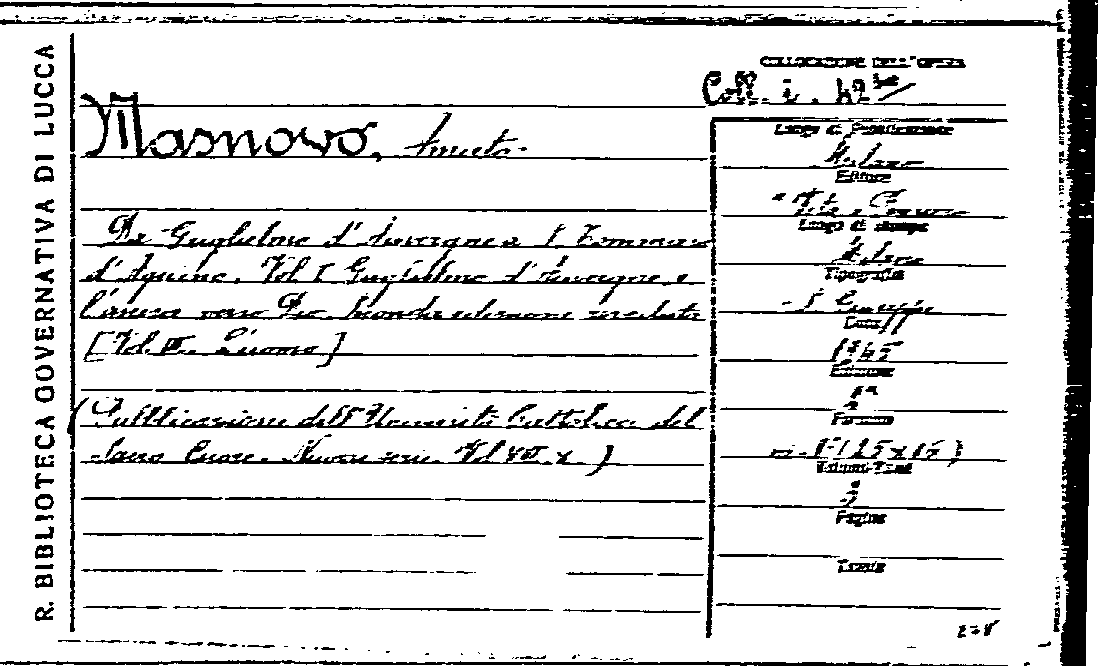 R. BIBLIOTECA GOVERNATIVA DI LUCCA
COLLOCAZIONE DELL'OPERA
Coll. i. 42
Masnovo, Amato.
Da Guglielmo d'Auvergne a S. Tommaso
d'Aquino. Vol. I Guglielmo d'Auvergne e
l'ascesa verso Dio. Seconda edizione
[Vol. II. L'uomo]
(Pubblicazioni dell'Università Cattolica del
Sacro Cuore. Nuova serie. Vol.
Luogo di Pubblicazione
Milano
Editore
Vita e Pensiero
Luogo di stampa
Milano
Tipografia
S. Giuseppe
Data
1945
Edizione
2ª
Formato
(25x15)
Volumi-Tomi
2
Pagine
Tavole